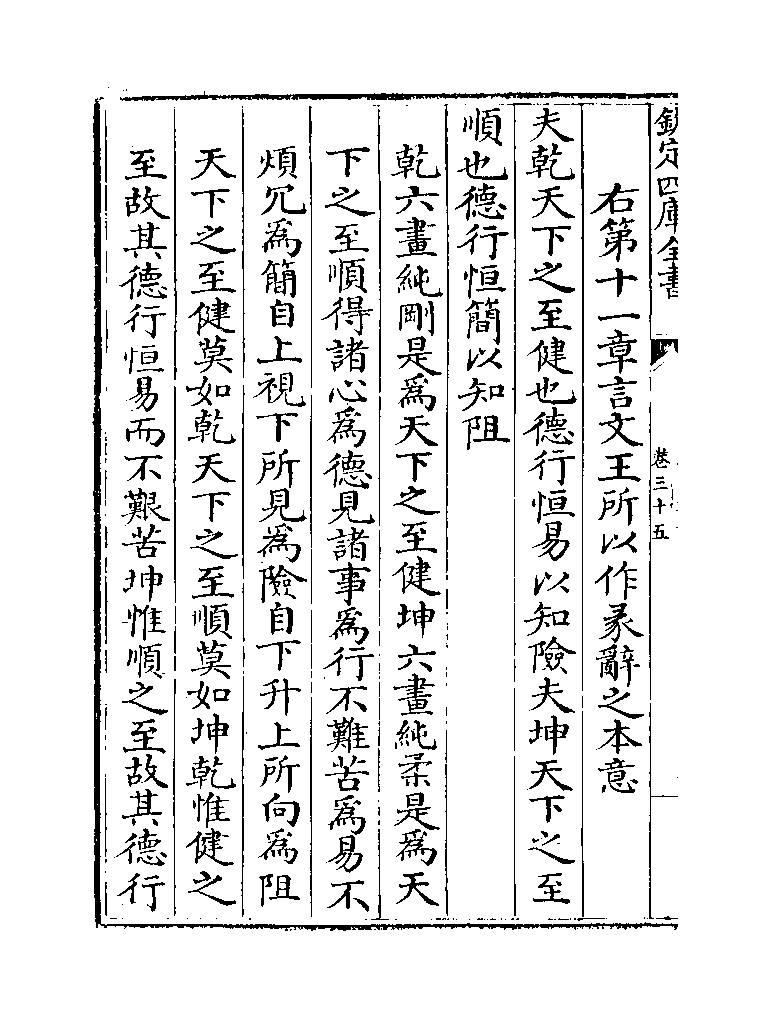 欽定四庫全書
卷三十五
右第十一章言文王所以作彖辭之本意
夫乾天下之至健也德行恒易以知險夫坤天下之至
順也德行恒簡以知阻
乾六畫純剛是為天下之至健坤六畫純柔是為天
下之至順得諸心為德見諸事為行不難苦為易不
煩冗為簡自上視下所見為險自下升上所向為阻
天下之至健莫如乾天下之至順莫如坤乾惟健之
至故其德行恒易而不艱苦坤惟順之至故其德行